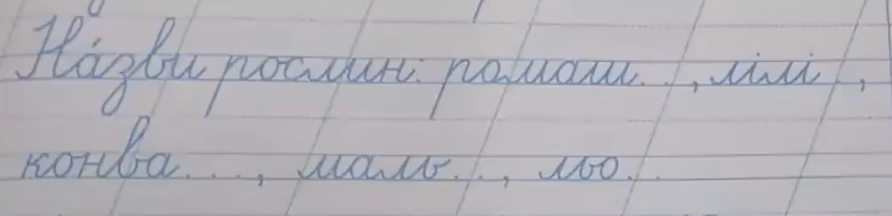 На́зви рослин: ромаш. . , лілі ,
конва. . . , маль. . , льо. .